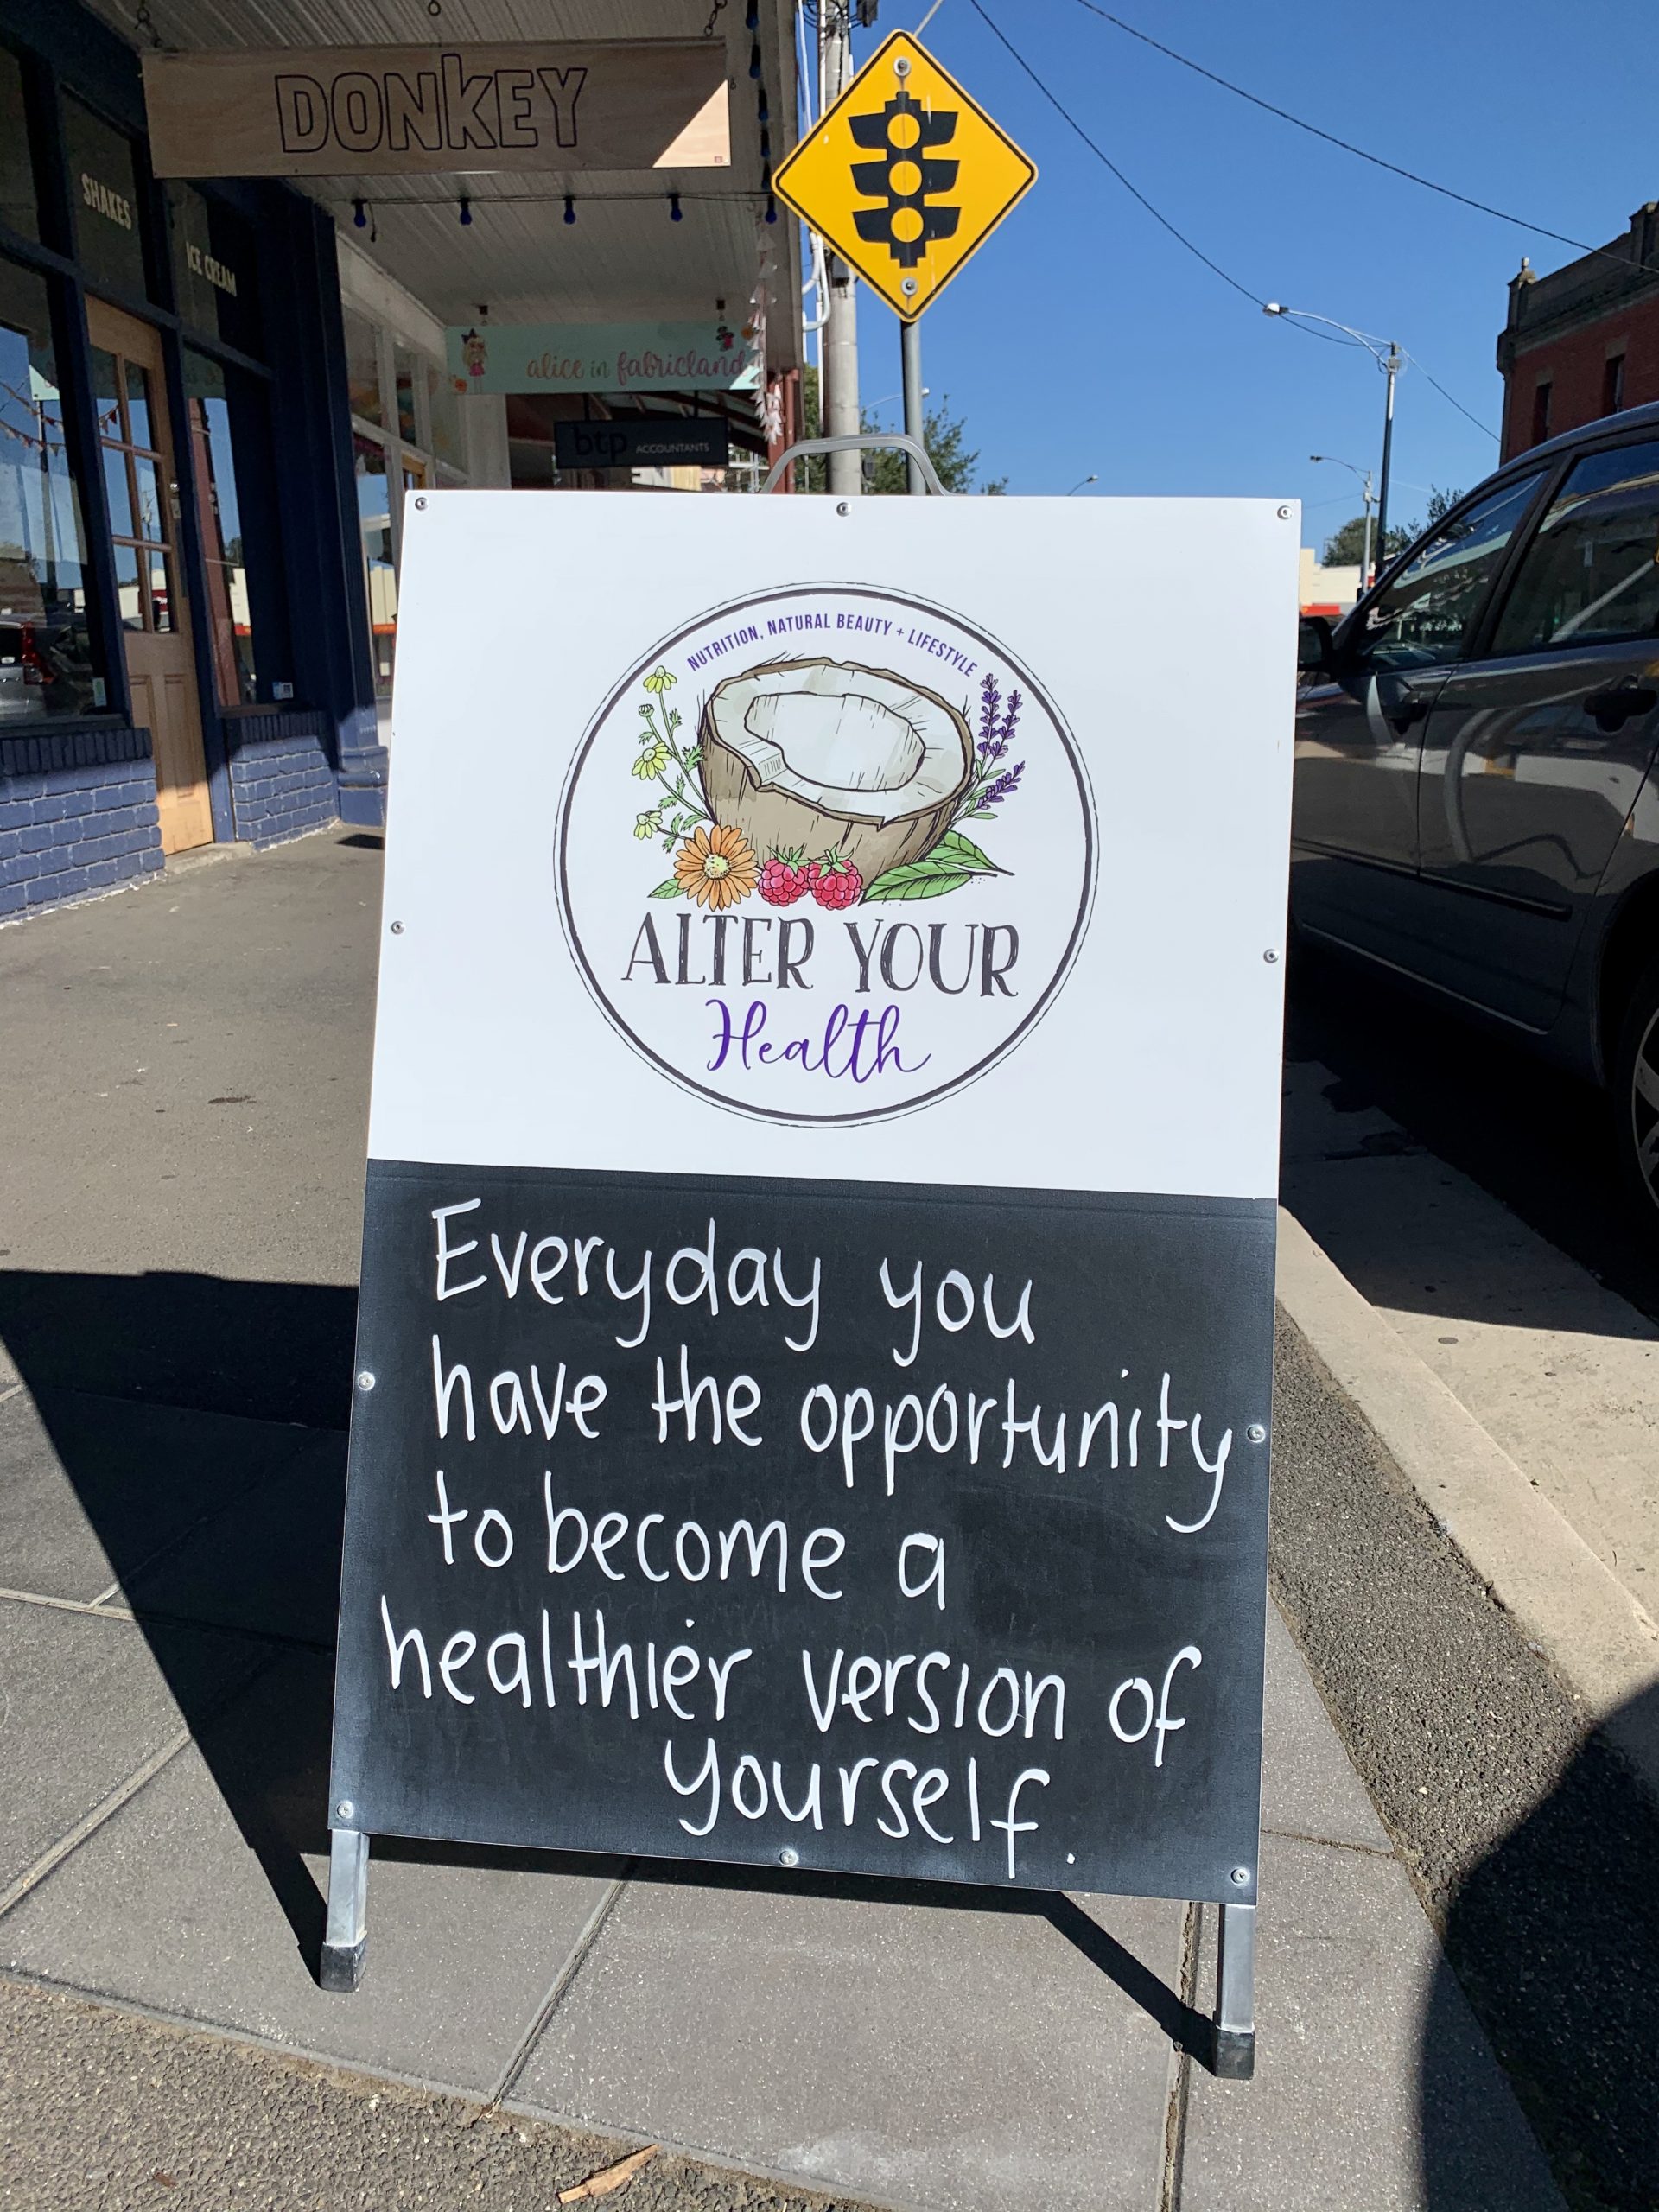 DONKEY
SHAKES
ICE CREAM
alice in fabricland
btp ACCOUNTANTS
NUTRITION, NATURAL BEAUTY + LIFESTYLE
ALTER YOUR
Health
Everyday you
have the opportunity
to become a
healthier version of
yourself.